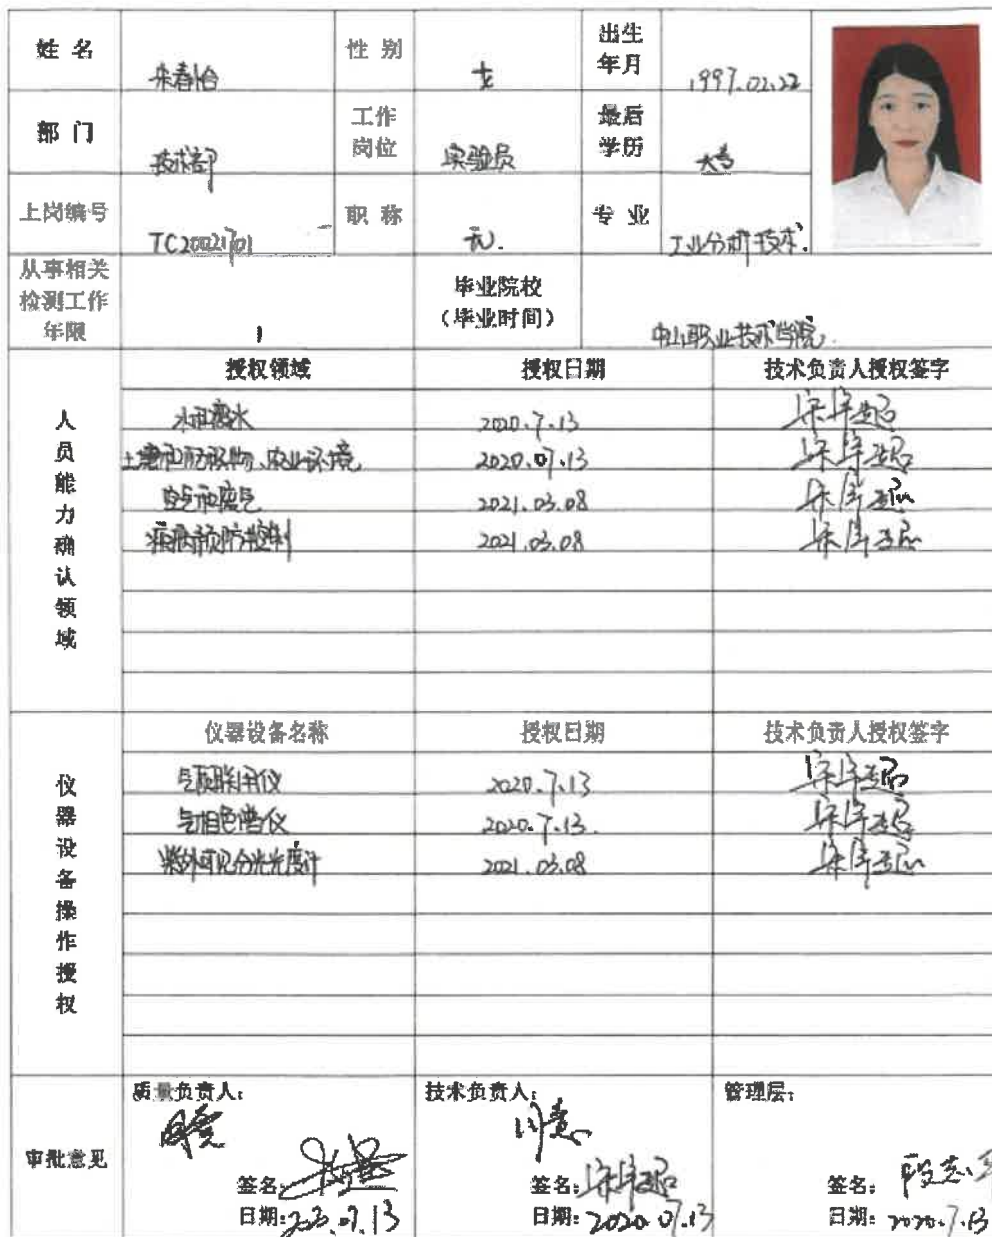 姓 名 朱春怡 性 别 女 出生年月 1997.02.22
部 门 技术部 工作岗位 实验员 最后学历 大专
上岗编号 TC20021701 职 称 无. 专 业 工业分析技术.
从事相关检测工作年限 1 毕业院校（毕业时间） 中山职业技术学院.
人员能力确认领域
授权领域 授权日期 技术负责人授权签字
水和废水 2020.7.13
土壤和沉积物、农业环境 2020.07.13
空气和废气 2021.03.08
疾病预防控制 2021.03.08
仪器设备操作授权
仪器设备名称 授权日期 技术负责人授权签字
气质联用仪 2020.7.13
气相色谱仪 2020.7.13.
紫外可见分光光度计 2021.03.08
审批意见
质量负责人： 技术负责人： 管理层：
同意 同意
签名： 签名： 签名：
日期： 日期：2020.07.13 日期：2020.7.13